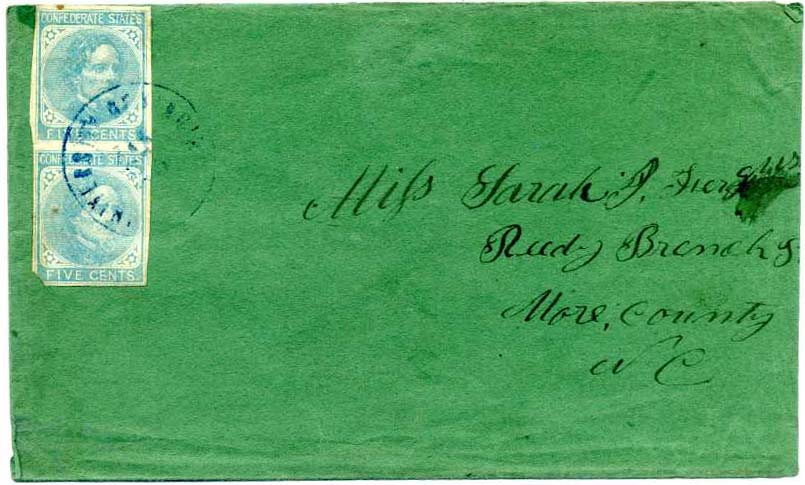 CONFEDERATE STATES
FIVE CENTS
CONFEDERATE STATES
FIVE CENTS
Miss Sarah J.
Reedy Branch
More, County
N C